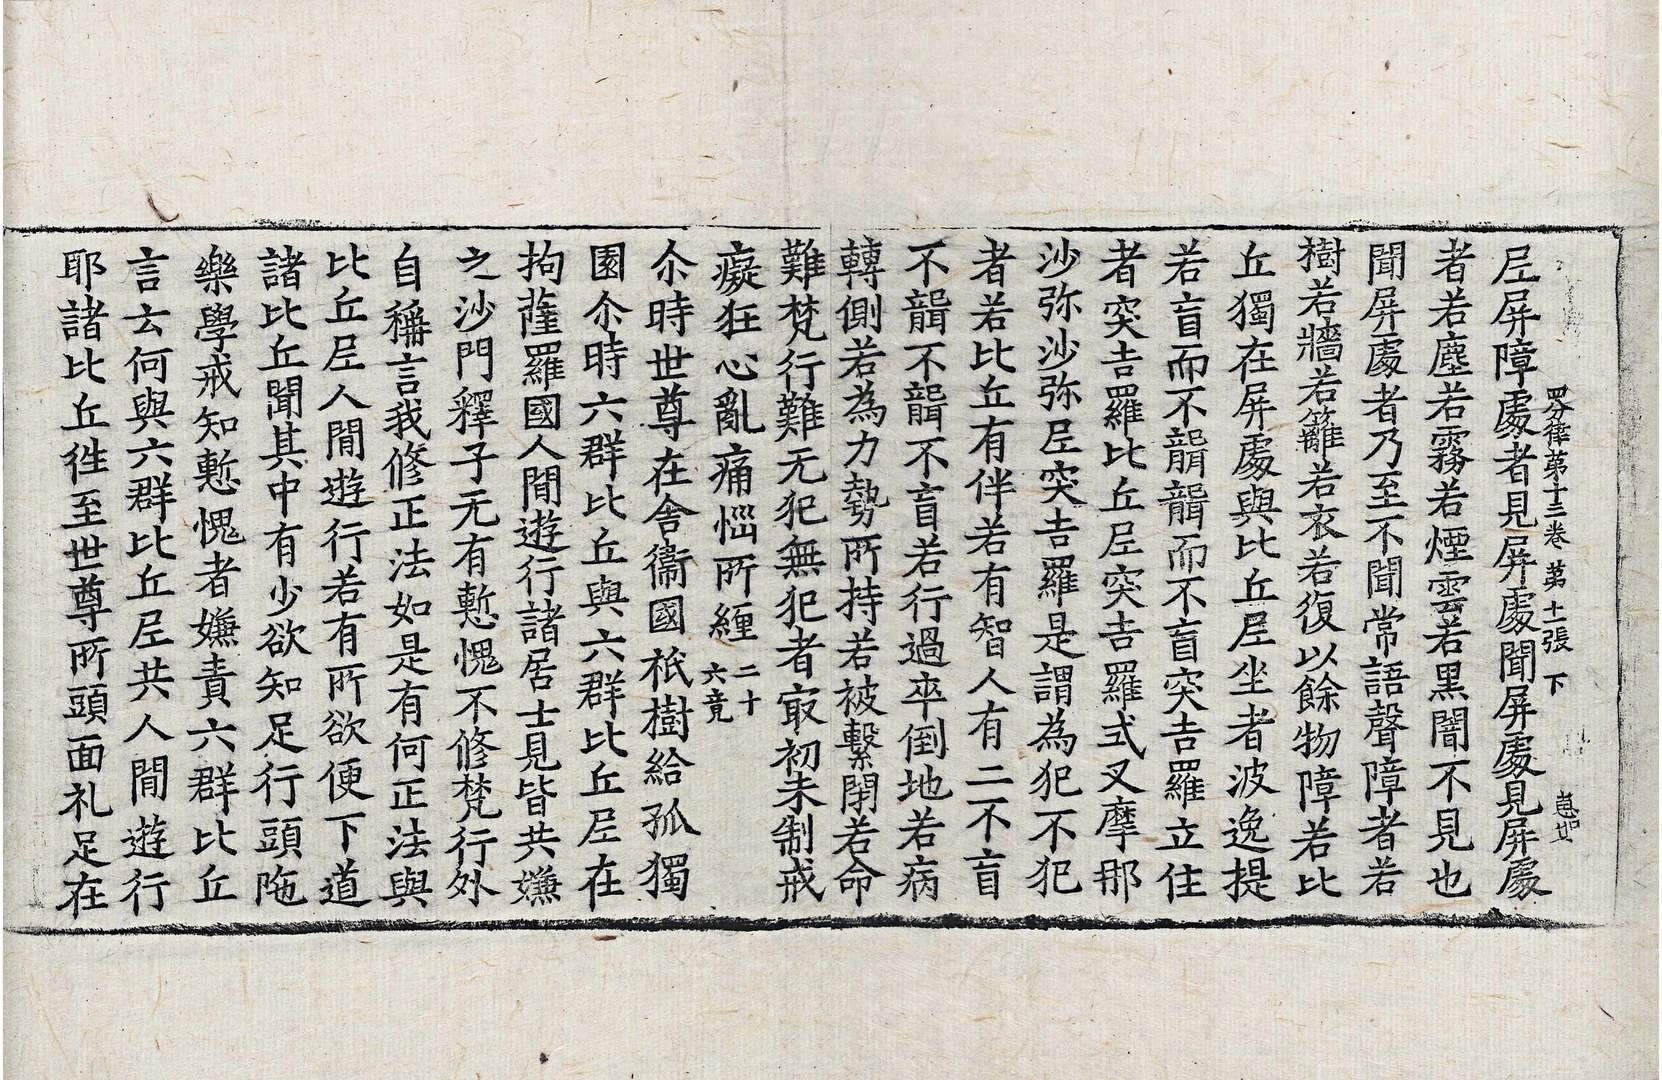 四分律第十三卷 第十一張 下
尼屏障處者見屏處聞屏處見屏處
者若塵若霧若煙雲若黑闇不見也
聞屏處者乃至不聞常語聲障者若
樹若牆若籬若衣若復以餘物障若比
丘獨在屏處與比丘尼坐者波逸提
若盲而不聾聾而不盲突吉羅立住
者突吉羅比丘尼突吉羅式叉摩那
沙弥沙弥尼突吉羅是謂為犯不犯
者若比丘有伴若有智人有二不盲
不聾不聾不盲若行過卒倒地若病
轉側若為力勢所持若被繫閉若命
難梵行難无犯無犯者冣初未制戒
癡狂心亂痛惱所纏 二十六竟
尒時世尊在舍衞國祇樹給孤獨
園尒時六群比丘與六群比丘尼在
拘薩羅國人間遊行諸居士見皆共嫌
之沙門釋子无有慙愧不修梵行外
自稱言我修正法如是有何正法與
比丘尼人間遊行若有所欲便下道
諸比丘聞其中有少欲知足行頭陁
樂學戒知慙愧者嫌責六群比丘
言云何與六群比丘尼共人間遊行
耶諸比丘徃至世尊所頭面礼足在